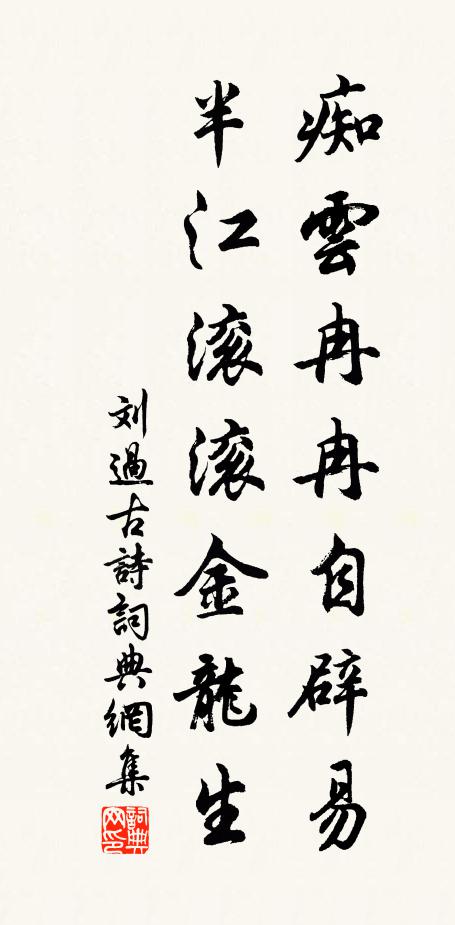 痴雲冉冉自辟易
半江滚滚金龍生
刘過古詩詞典網集
詞典网印